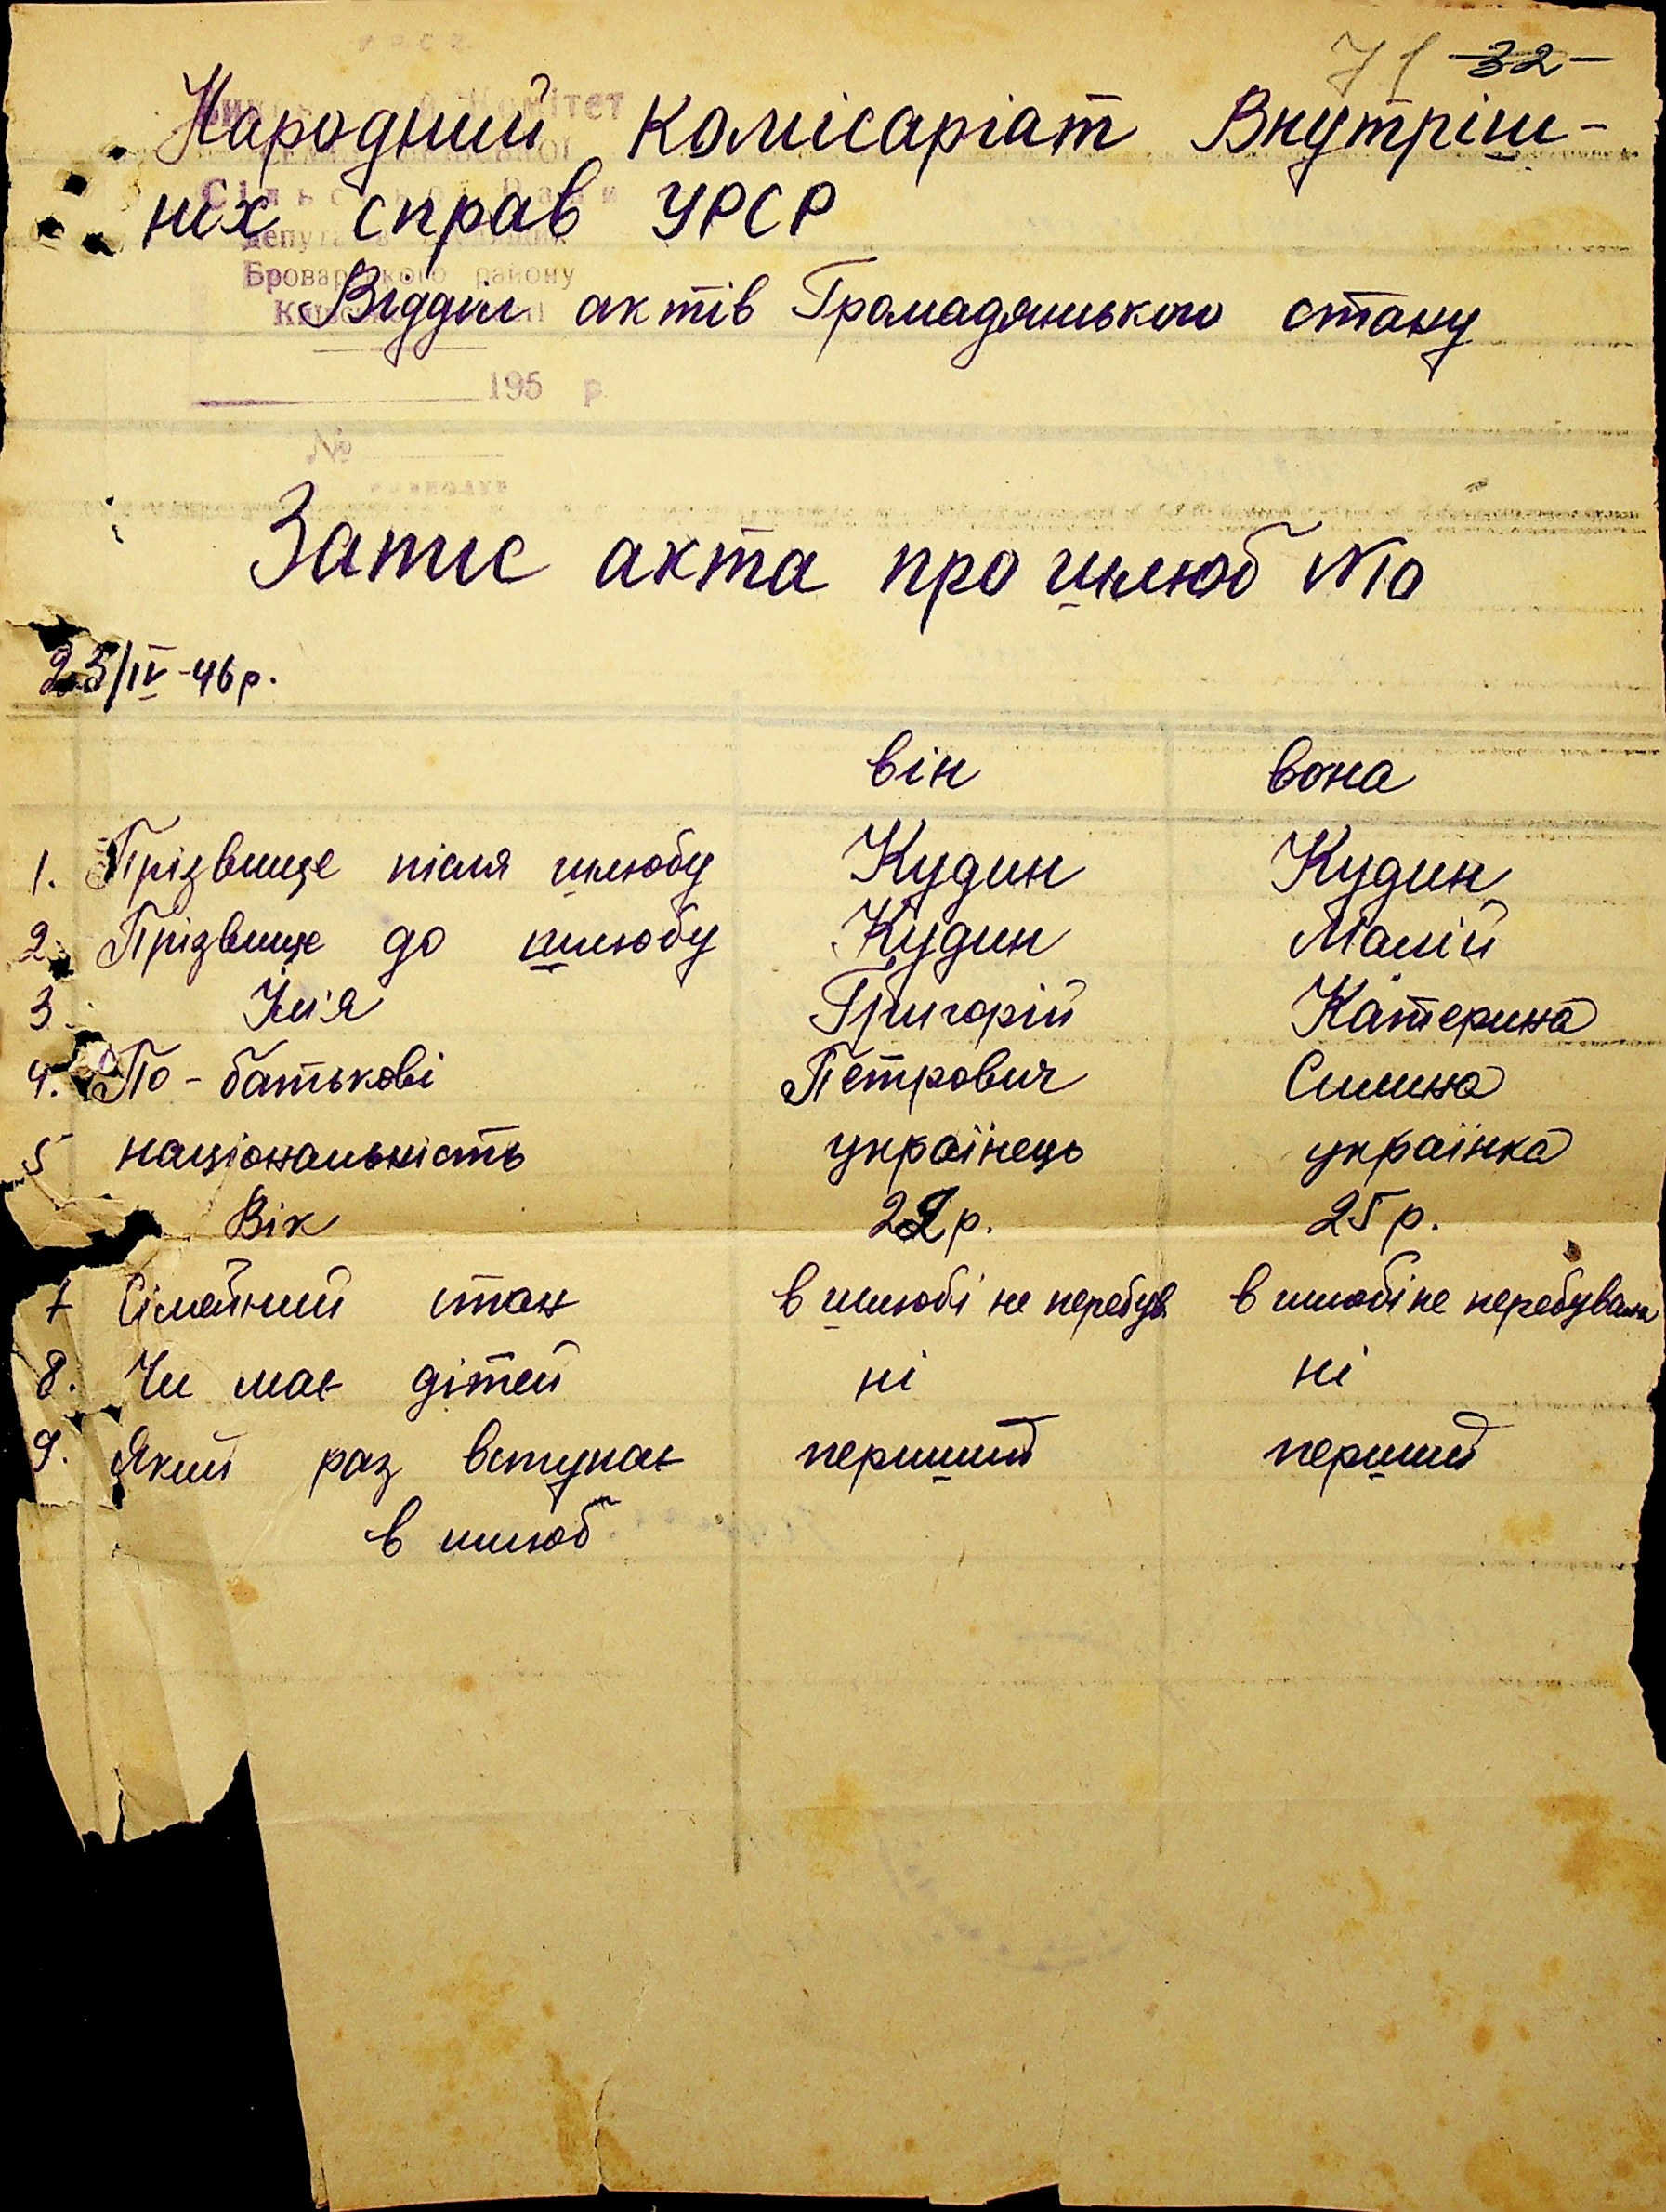 71 32
Народний Комісаріат Внутріш-
ніх справ УРСР
Комітет
Броварського району
Відділ актів Громадянського стану
195 р
№
Запис акта про шлюб №10
23/IV-46р.
він вона
1. Прізвище після шлюбу Кудин Кудин
2. Прізвище до шлюбу Кудин Малій
3 Ім'я Григорій Катерина
4. По-батькові Петрович
5 національність українець українка
Вік 22р. 25р.
7 Сімейний стан в шлюбі не перебув в шлюбі не перебувала
8. Чи має дітей ні ні
9. Який раз вступає перший перший
в шлюб